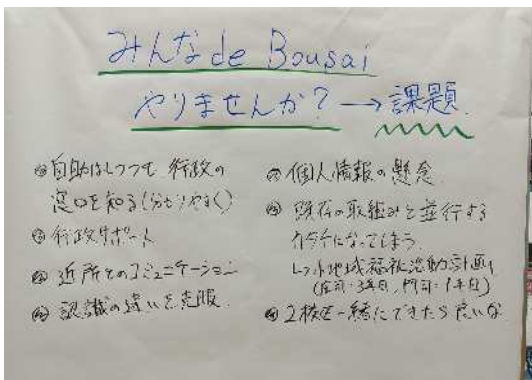 みんなde Bousai
やりませんか? → 課題
自助はしつつも 行政の
窓口を知る(分かりやすく)
行政サポート
近所とのコミュニケーション
認識の違いを克服
個人情報の懸念
既存の取組みと並行する
になってしまう
小地域福祉活動計画
3年目, 1年目)
2校区一緒にできたら良いな